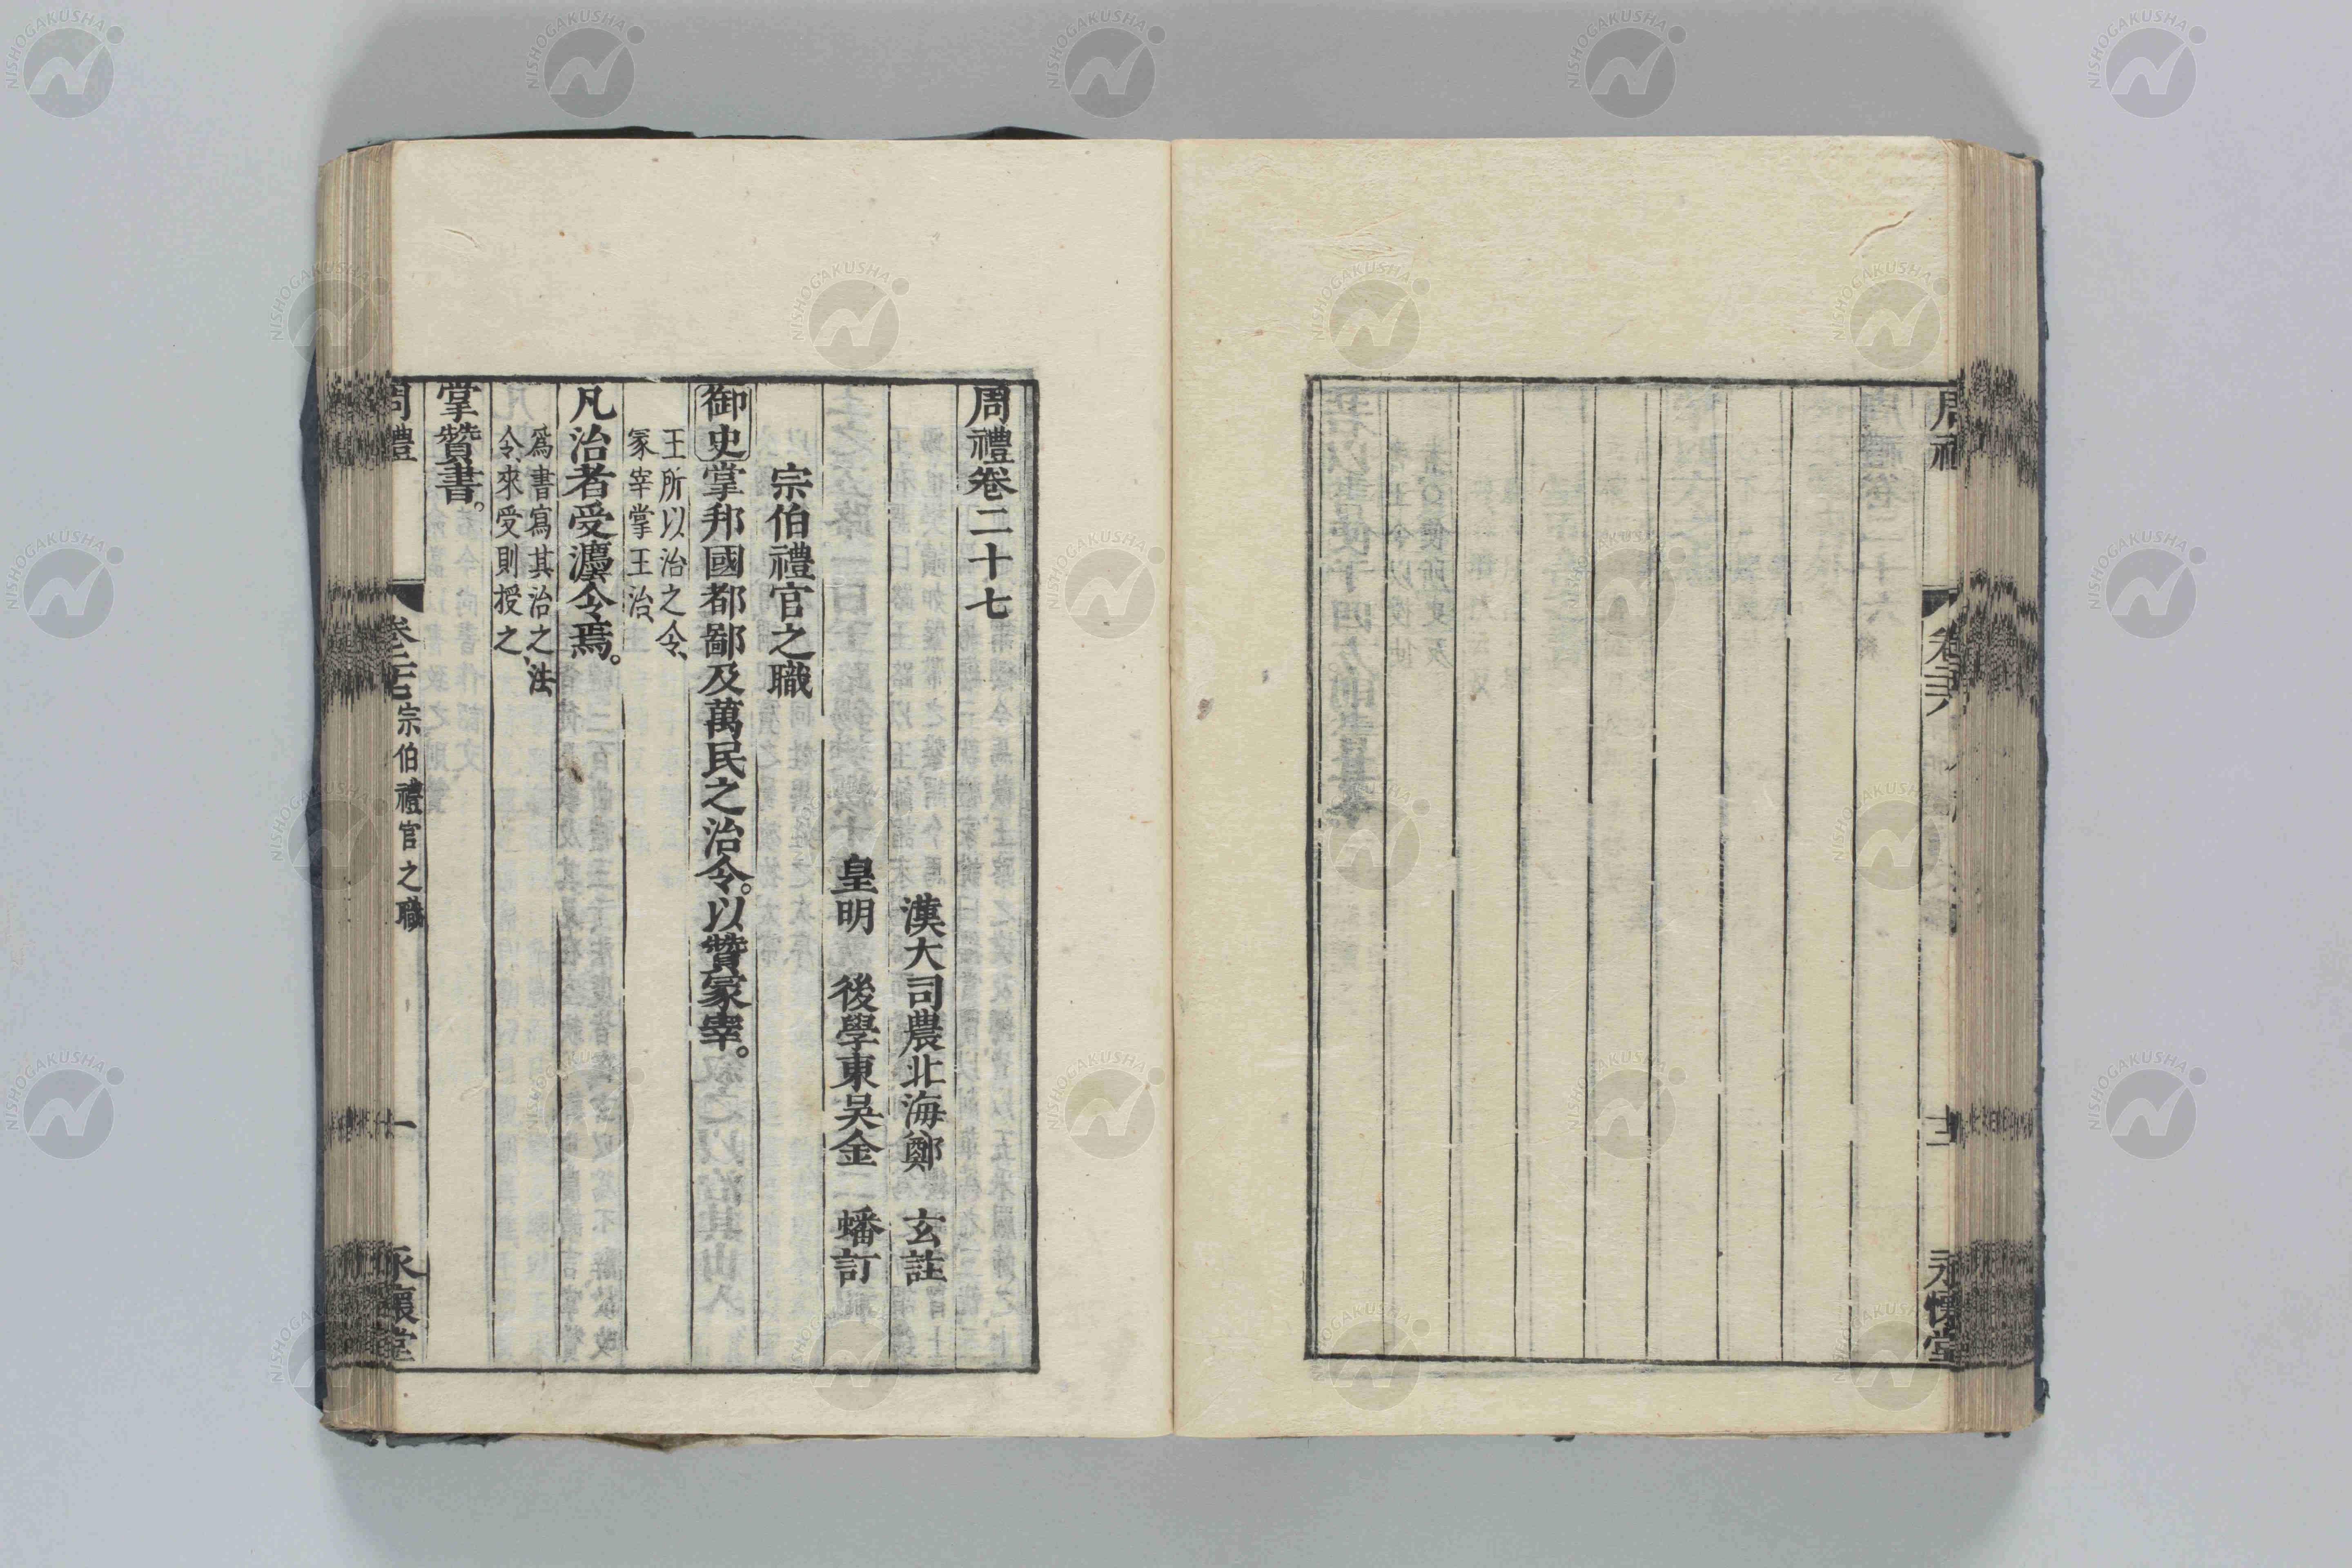 周禮
永懷堂
周禮卷二十七
漢大司農北海鄭　玄註
皇明　後學東吳金　蟠訂
宗伯禮官之職
御史掌邦國都鄙及萬民之治令。以贊冢宰。
王所以治之令、
冢宰掌王治、
凡治者受灋令焉。
爲書寫其治之法、
令、來受則授之、
掌贊書。
周禮
宗伯禮官之職
一
永懷堂
NISHOGAKUSHA